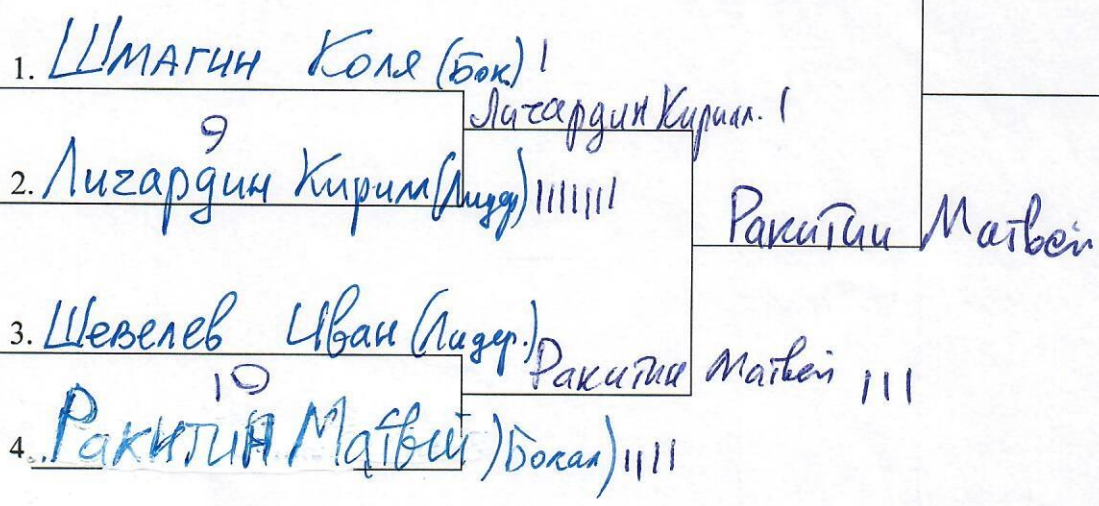 1. Шмагин Коля (Бок.) I
Личардин Кирилл. I
9
2. Личардин Кирилл (Лидер) IIIIIII
Ракитин Матвей
3. Шевелев Иван (Лидер.)
Ракитин Матвей III
10
4. Ракитин Матвей )Бокал) IIII